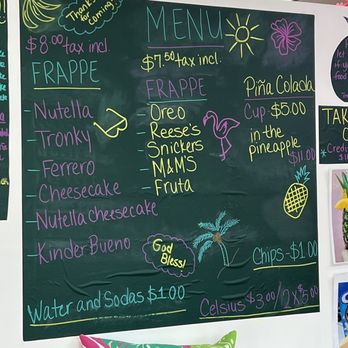 Thanks
for
Coming!
MENU
$8.00 tax incl.
FRAPPE
- Nutella
- Tronky
- Ferrero
- Cheesecake
- Nutella cheesecake
- Kinder Bueno
$7.50 tax incl.
FRAPPE
- Oreo
- Reese's
- Snickers
- M&M'S
- Fruta
Piña Colada
Cup $5.00
in the
pineapple
$11.00
God
Bless!
Chips - $1.00
Water and Sodas $1.00
Celsius $3.00 / 2x$5.00
let
if
food
TAK